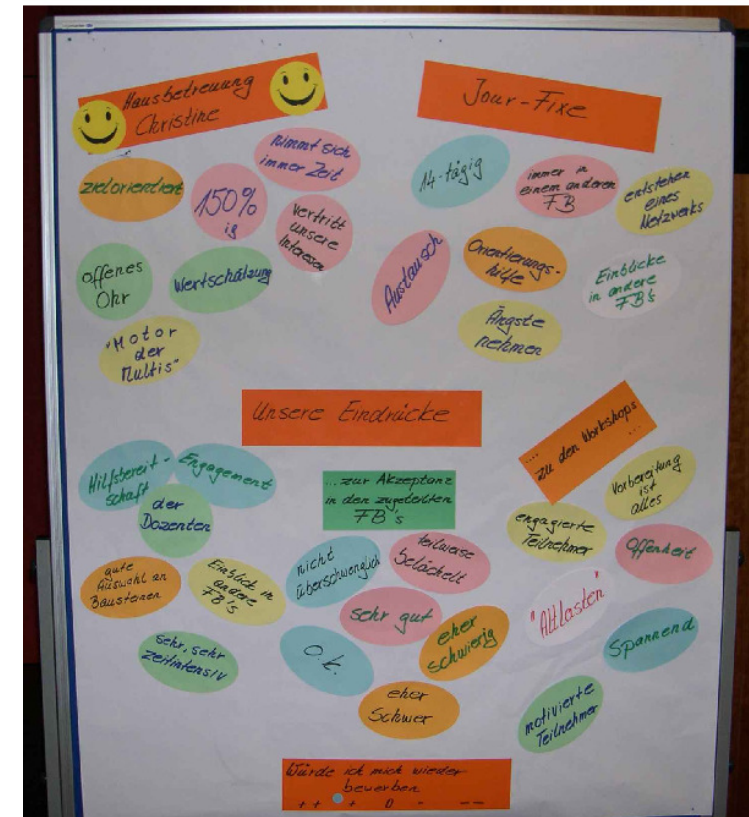 Hausbetreuung
Christine
zielorientiert
150%
ig
nimmt sich
immer Zeit
vertritt
unsere
Interessen
offenes
Ohr
Wertschätzung
"Motor
der
Multis"
Jour-Fixe
14-tägig
immer in
einem anderen
FB
entstehen
eines
Netzwerks
Austausch
Orientierungs-
hilfe
Einblicke
in andere
FB's
Ängste
nehmen
Unsere Eindrücke
Hilfsbereit-
schaft
Engagement
der
Dozenten
gute
Auswahl an
Bausteinen
Einblick in
andere
FB's
sehr, sehr
zeitintensiv
...zur Akzeptanz
in den zugeteilten
FB's
nicht
überschwenglich
teilweise
belächelt
sehr gut
o.k.
eher
schwierig
eher
Schwer
....
zu den Workshops
...
Vorbereitung
ist
alles
engagierte
Teilnehmer
Offenheit
"Altlasten"
Spannend
motivierte
Teilnehmer
Würde ich mich wieder
bewerben
++ + 0 - --